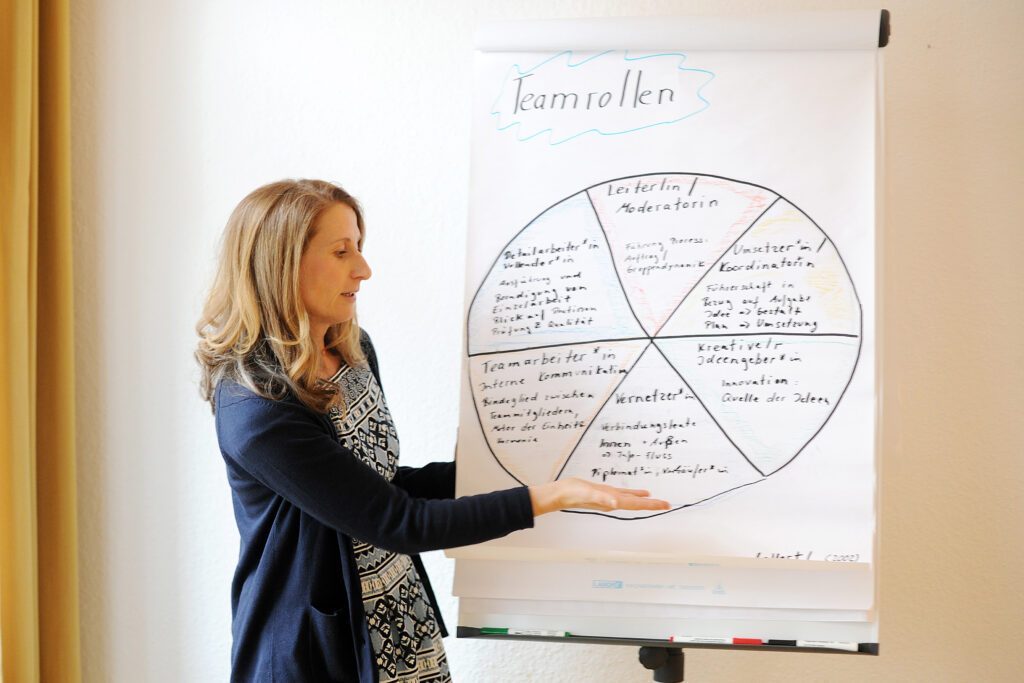 Teamrollen
Leiter/in /
Moderatorin
Führung Prozess:
Auftrag /
Gruppendynamik
Umsetzer*in /
Koordinator*in
Führerschaft in
Bezug auf Aufgabe
Idee => Gestalt
Plan => Umsetzung
Kreative/r
Ideengeber*in
Innovation:
Quelle der Ideen
Vernetzer*in
Verbindungsleute
Innen + Außen
=> Info-Fluss
Diplomat*in, Verkäufer*in
Teamarbeiter*in
Interne Kommunikation
Bindeglied zwischen
Teammitgliedern,
Motor der Einheit &
Harmonie
Detailarbeiter*in
Vollender*in
Ausführung und
Beendigung von
Einzelarbeit
Blick auf
Prüfung & Qualität
(2002)